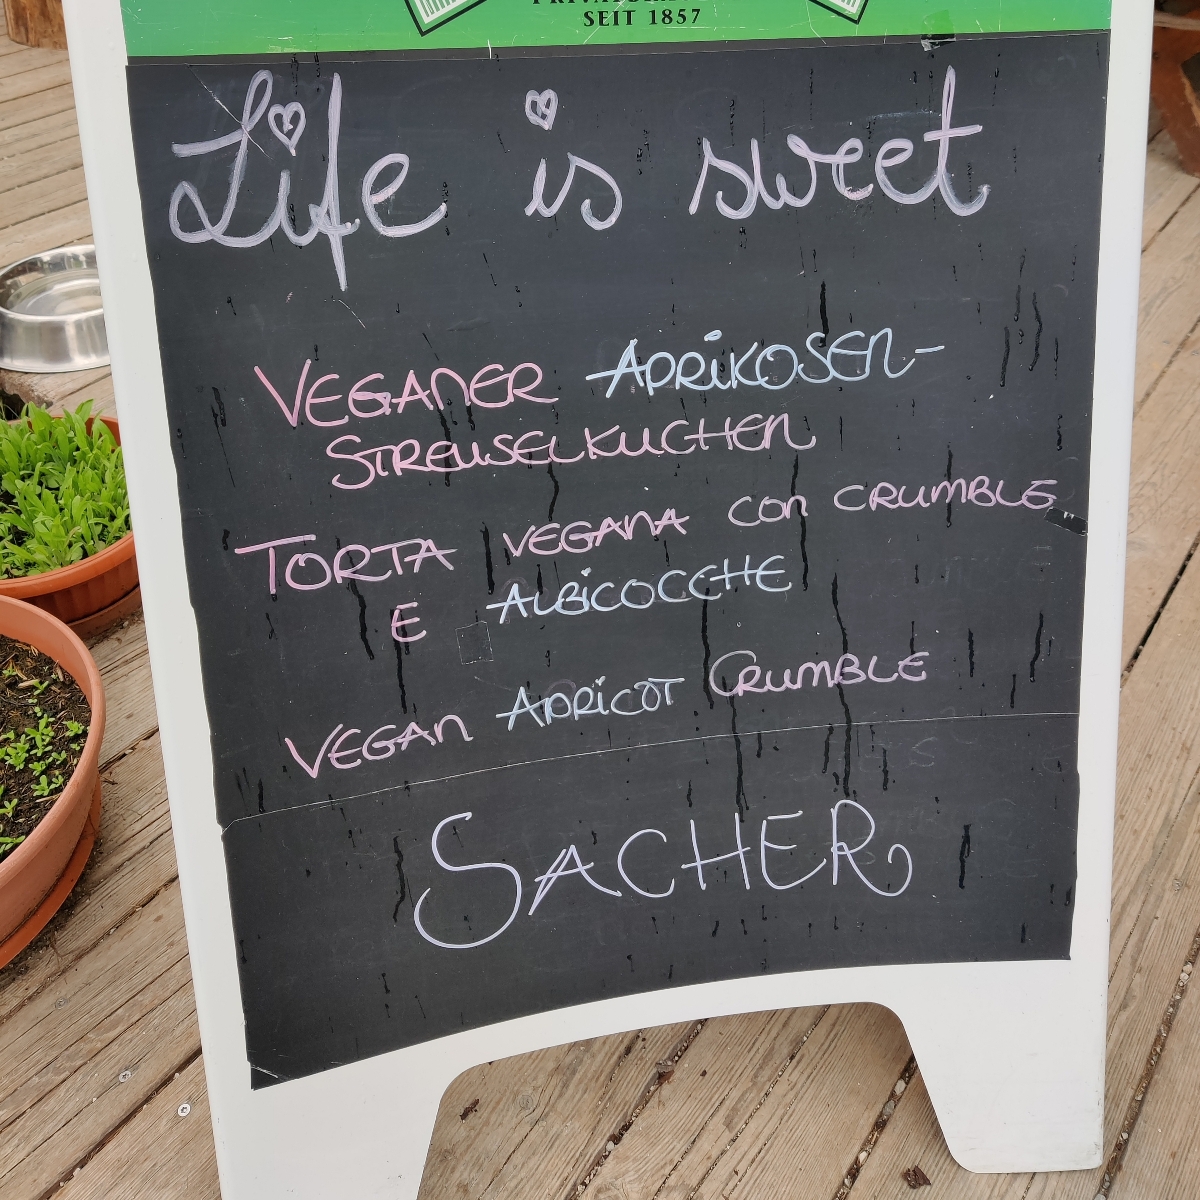 SEIT 1857
Life is sweet
VEGANER APRIKOSEN-
STREUSELKUCHEN
TORTA VEGANA CON CRUMBLE
E ALBICOCCHE
VEGAN APRICOT CRUMBLE
SACHER